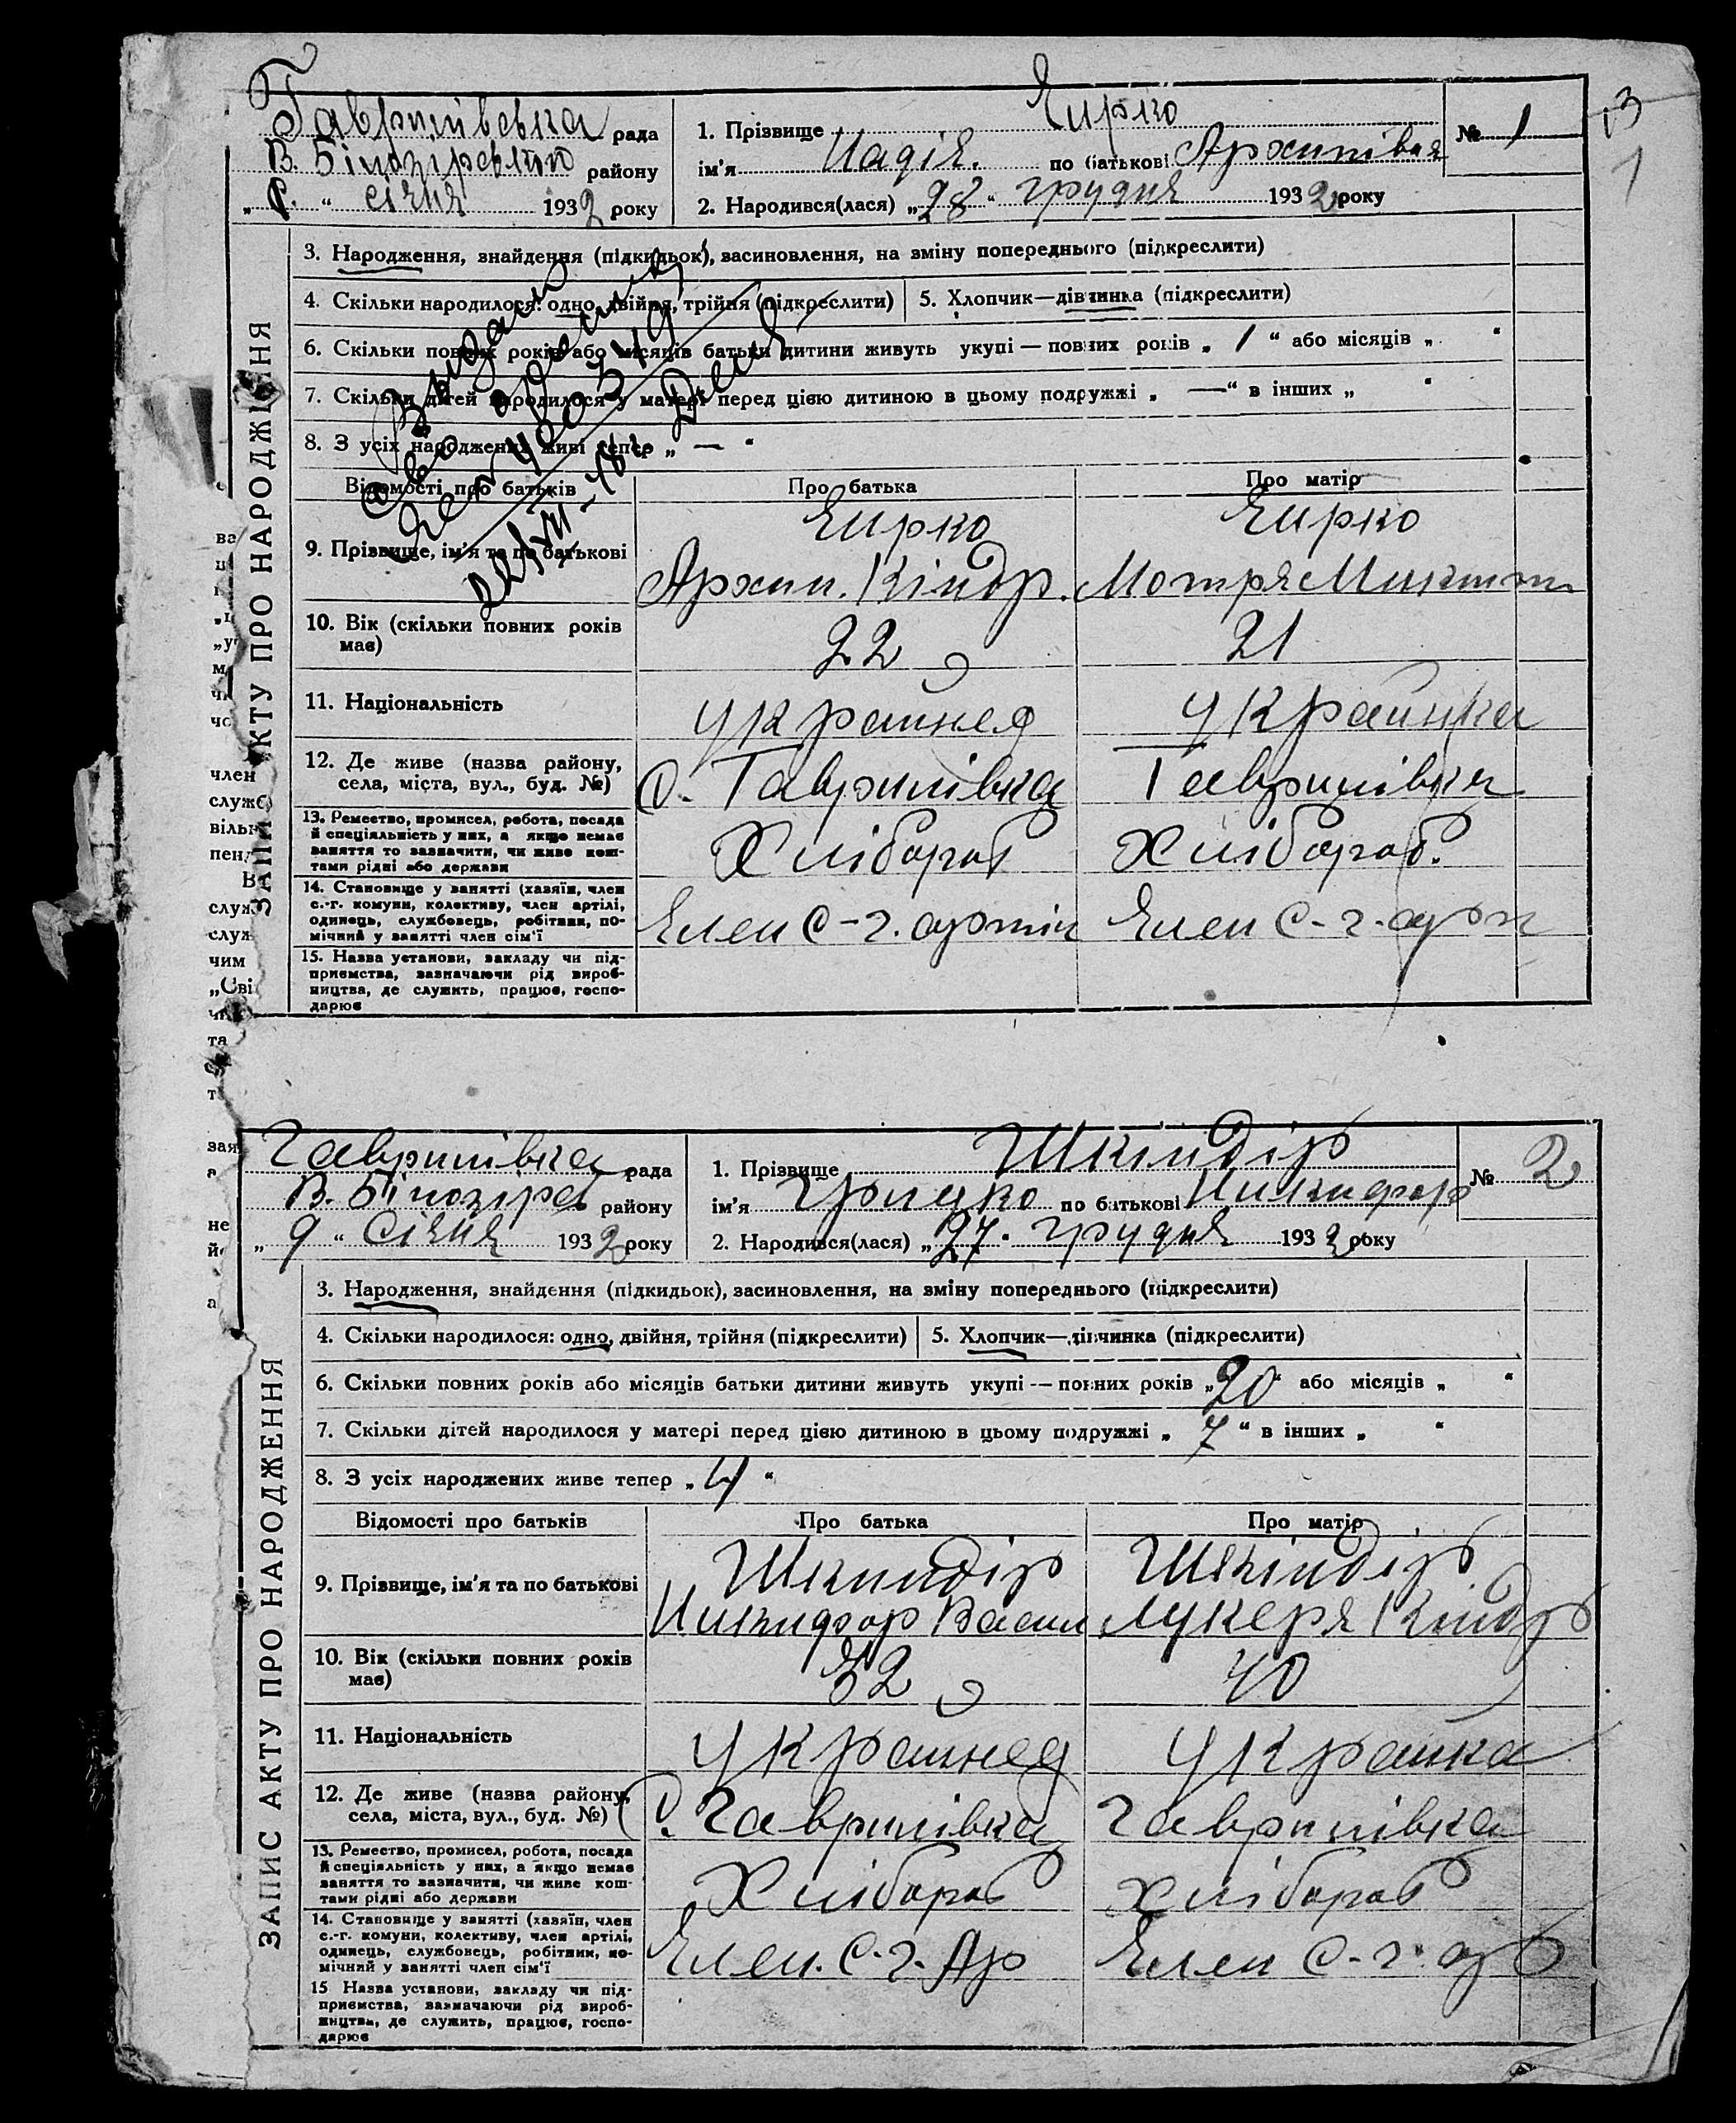 13
1
Гаврилівська рада
В. Білозірського району
" " січня 1932 року
1. Прізвище Чирко
ім'я Надія. по батькові Архипівна
№ 1
2. Народився(лася) „28" грудня 1932 року
ЗАПИС АКТУ ПРО НАРОДЖЕННЯ
3. Народження, знайдення (підкидьок), засиновлення, на зміну попереднього (підкреслити)
4. Скільки народилося: одно, двійня, трійня (підкреслити)
5. Хлопчик—дівчинка (підкреслити)
6. Скільки повних років або місяців батьки дитини живуть укупі — повних років „ 1 " або місяців „ "
7. Скільки дітей народилося у матері перед цією дитиною в цьому подружжі „ — " в інших „ "
8. З усіх народжених живі тепер „ — "
Видано
Відомості про батьків
Про батька
Про матір
9. Прізвище, ім'я та по батькові
Чирко
Архип. Кіндр.
Чирко
Мотря Микит
10. Вік (скільки повних років має)
22
21
11. Національність
українец
українка
12. Де живе (назва району, села, міста, вул., буд. №)
с. Гаврилівка
Гаврилівка
13. Ремество, промисел, робота, посада й спеціяльність у них, а якщо немає заняття то зазначити, чи живе коштами рідні або держави
Хлібороб
Хлібороб.
14. Становище у занятті (хазяїн, член с.-г. комуни, колективу, член артілі, одинець, службовець, робітник, помічний у занятті член сім'ї
Член с-г. артіл
Член с-г. арт
15. Назва установи, закладу чи підприємства, зазначаючи рід виробництва, де служить, працює, господарює
Гаврилівка рада
В. Білозірсь району
„ 9 " Січня 1932 року
1. Прізвище Шкіндір
ім'я Грицко по батькові Никифор
№ 2
2. Народився(лася) „27" грудня 1932 року
ЗАПИС АКТУ ПРО НАРОДЖЕННЯ
3. Народження, знайдення (підкидьок), засиновлення, на зміну попереднього (підкреслити)
4. Скільки народилося: одно, двійня, трійня (підкреслити)
5. Хлопчик—дівчинка (підкреслити)
6. Скільки повних років або місяців батьки дитини живуть укупі — повних років „20" або місяців „ "
7. Скільки дітей народилося у матері перед цією дитиною в цьому подружжі „ 7 " в інших „ "
8. З усіх народжених живе тепер „ 4 "
Відомості про батьків
Про батька
Про матір
9. Прізвище, ім'я та по батькові
Шкиндір
Никифор Васил
Шкіндір
Лукеря Кіндр
10. Вік (скільки повних років має)
52
40
11. Національність
українец
українка
12. Де живе (назва району, села, міста, вул., буд. №)
с. Гаврилівка
Гаврилівка
13. Ремество, промисел, робота, посада й спеціяльність у них, а якщо немає заняття то зазначити, чи живе коштами рідні або держави
Хлібороб
Хлібороб
14. Становище у занятті (хазяїн, член с.-г. комуни, колективу, член артілі, одинець, службовець, робітник, помічний у занятті член сім'ї
Член. с-г. Ар
Член с-г. ар
15 Назва установи, закладу чи підприємства, зазначаючи рід виробництва, де служить, працює, господарює